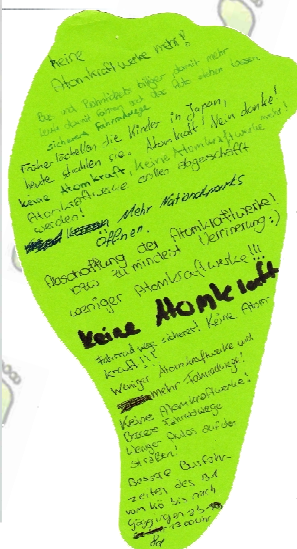 Keine
Atomkraftwerke mehr!!
Bus und Bahntickets billiger damit mehr
Leute damit fahren und das Auto stehen lassen
sicherere Fahrradwege
Früher lächelten die Kinder in Japan,
heute strahlen sie. Atomkraft? Nein danke!
keine Atomkraft, keine Atomkraftwerke mehr!
Atomkraftwerke sollen abgeschafft
werden!
Mehr Nationalparks
Öffnen.
Abschaffung der Atomkraftwerke!
bzw. zumindest Verringerung :)
weniger Atomkraftwerke!!!
Keine Atomkraft
Fahrradwege sicherer! Keine Atom
kraft!!!
Weniger Atomkraftwerke und
mehr Fahrradwege!
Keine Atomkraftwerke!
Bessere Fahrradwege
Weniger Autos auf den
Straßen!
Bessere Busfahr-
zeiten des Bus
vom Kö bis nach
Göggingen